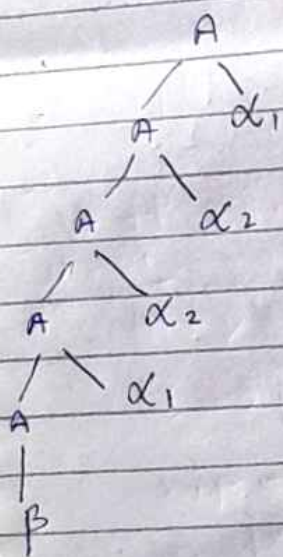 A
A α1
A α2
A α2
A α1
β